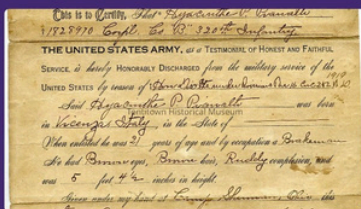 This is to Certify, That Hyacinthe P. Pianalto
1828970 Corpl Co "B" 320th Infantry
THE UNITED STATES ARMY, as a TESTIMONIAL OF HONEST AND FAITHFUL
SERVICE, is hereby HONORABLY DISCHARGED from the military service of the
UNITED STATES by reason of
1919
Said Hyacinthe P. Pianalto was born
in Vicenza Italy, in the State of
Tontitown Historical Museum
When enlisted he was 21 years of age and by occupation a Brakeman
He had Brown eyes, Brown hair, Ruddy complexion, and
was 5 feet 4½ inches in height.
Given under my hand at Camp Sherman, Ohio this